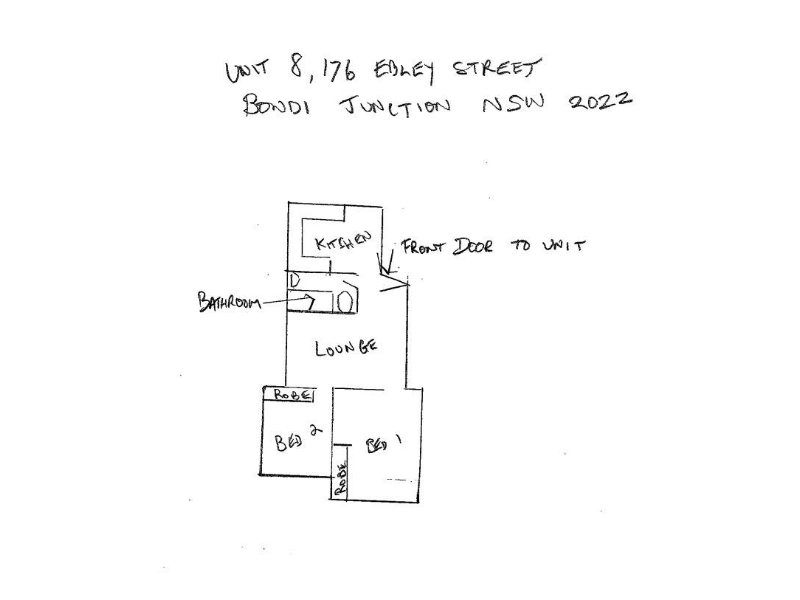 UNIT 8, 176 EBLEY STREET
BONDI JUNCTION NSW 2022
KITCHEN
FRONT DOOR TO UNIT
D
BATHROOM
LOUNGE
ROBE
BED 2
BED 1
ROBE